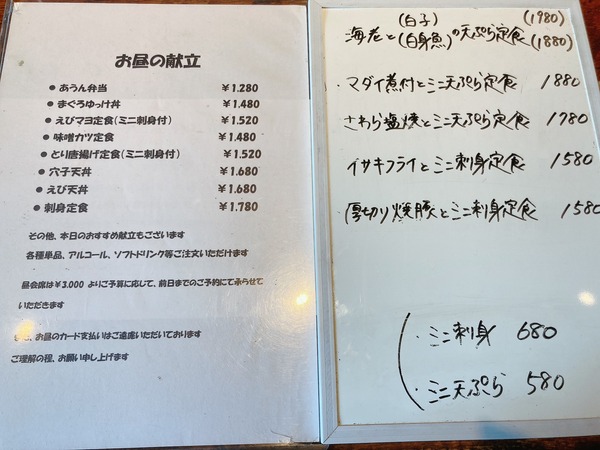 お昼の献立
● あうん弁当 ¥1.280
● まぐろゆっけ丼 ¥1.480
● えびマヨ定食(ミニ刺身付) ¥1.520
● 味噌カツ定食 ¥1.480
● とり唐揚げ定食(ミニ刺身付) ¥1.520
● 穴子天丼 ¥1.680
● えび天丼 ¥1.680
● 刺身定食 ¥1.780
その他、本日のおすすめ献立もございます
各種単品、アルコール、ソフトドリンク等ご注文いただけます
昼会席は¥3.000 よりご予算に応じて、前日までのご予約にて承らせて
いただきます
お昼のカード支払いはご遠慮いただいております
ご理解の程、お願い申し上げます
(白子) (1980)
海老と(白身魚)の天ぷら定食 (1880)
・マダイ煮付とミニ天ぷら定食 1880
さわら塩焼とミニ天ぷら定食 1780
イサキフライとミニ刺身定食 1580
厚切り焼豚とミニ刺身定食 1580
・ミニ刺身 680
・ミニ天ぷら 580